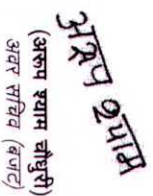 अरूप श्याम
(अरूप श्याम चौधुरी)
अवर सचिव (बजट)